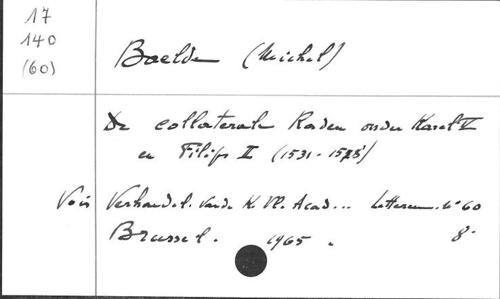 17
140
(60)
Baelde (Michel)
De collaterale Raden onder Karel V
en Filips II (1531-1578)
Voir Verhandel. van de K. Vl. Acad... Letteren. n° 60
Brussel. 1965. 8°